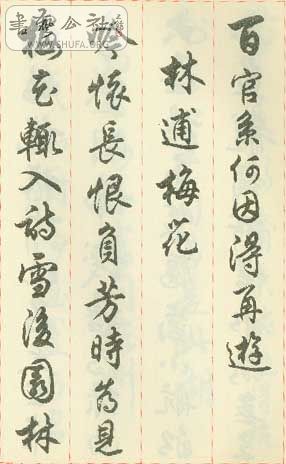 百官何因得再遊
林逋梅花
吟懷長恨負芳時為見
梅花輒入詩雪後園林
公社
WWW.SHUFA.ORG